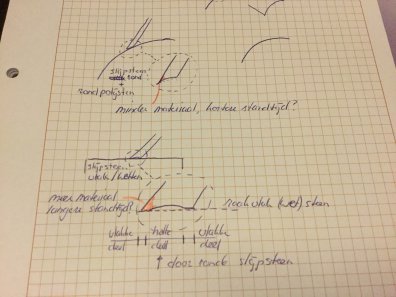 slijpsteen
rond
+
rond polijsten
minder materiaal, kortere standtijd?
slijpsteen
vlak/wetten
meer materiaal
langere standtijd?
na vlak (wet) steen
vlakke holle vlakke
deel deel deel
↑ door ronde slijpsteen